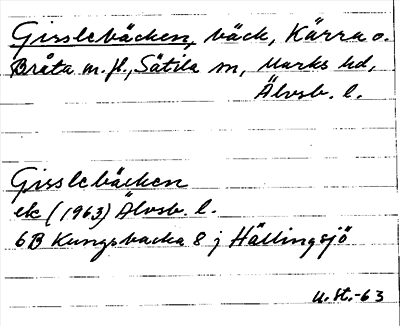 Gisslebäcken, bäck, Kärra o.
Bråta m.fl., Sätila sn, Marks hd,
Älvsb. l.
Gisslebäcken
ek (1963) Älvsb. l.
6B Kungsbacka 8 j Hällingsjö
U.St.-63